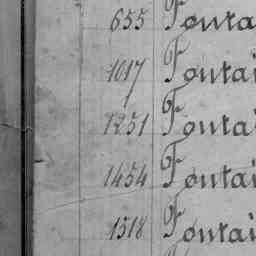 655 Fontai
1017 Fontai
1251 Fontai
1454 Fontai
1518 Fontai